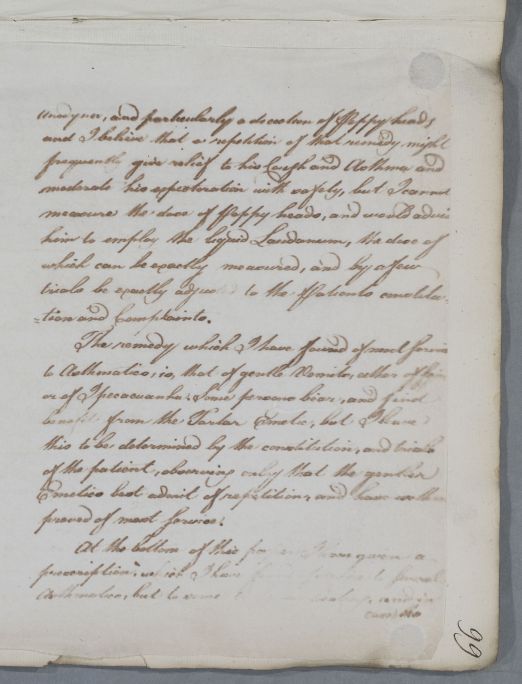 Anodynes, and particularly a decoction of Poppy heads
and I believe that a repetition of that remedy might
frequently give relief to his Cough and Asthma and
moderate his expectoration with safety, but I cannot
measure the dose of Poppy heads, and would advise
him to employ the liquid Laudanum, the dose of
which can be exactly measured, and by a few
trials be exactly adjusted to the Patients constitu-
-tion and Complaints.
The remedy which I have found of most service
to Asthmatics, is, that of gentle Vomits, either of
or of Ipecacuanha; Some persons bear, and find
benefit from the Tartar Emetic, but I leave
this to be determined by the constitution, and trials
of the patient, observing only that the gentler
Emetics best admit of repetition, and have
proved of most service.
At the bottom of this paper I have given a
prescription, which I have to several
Asthmatics, but to some and in
99